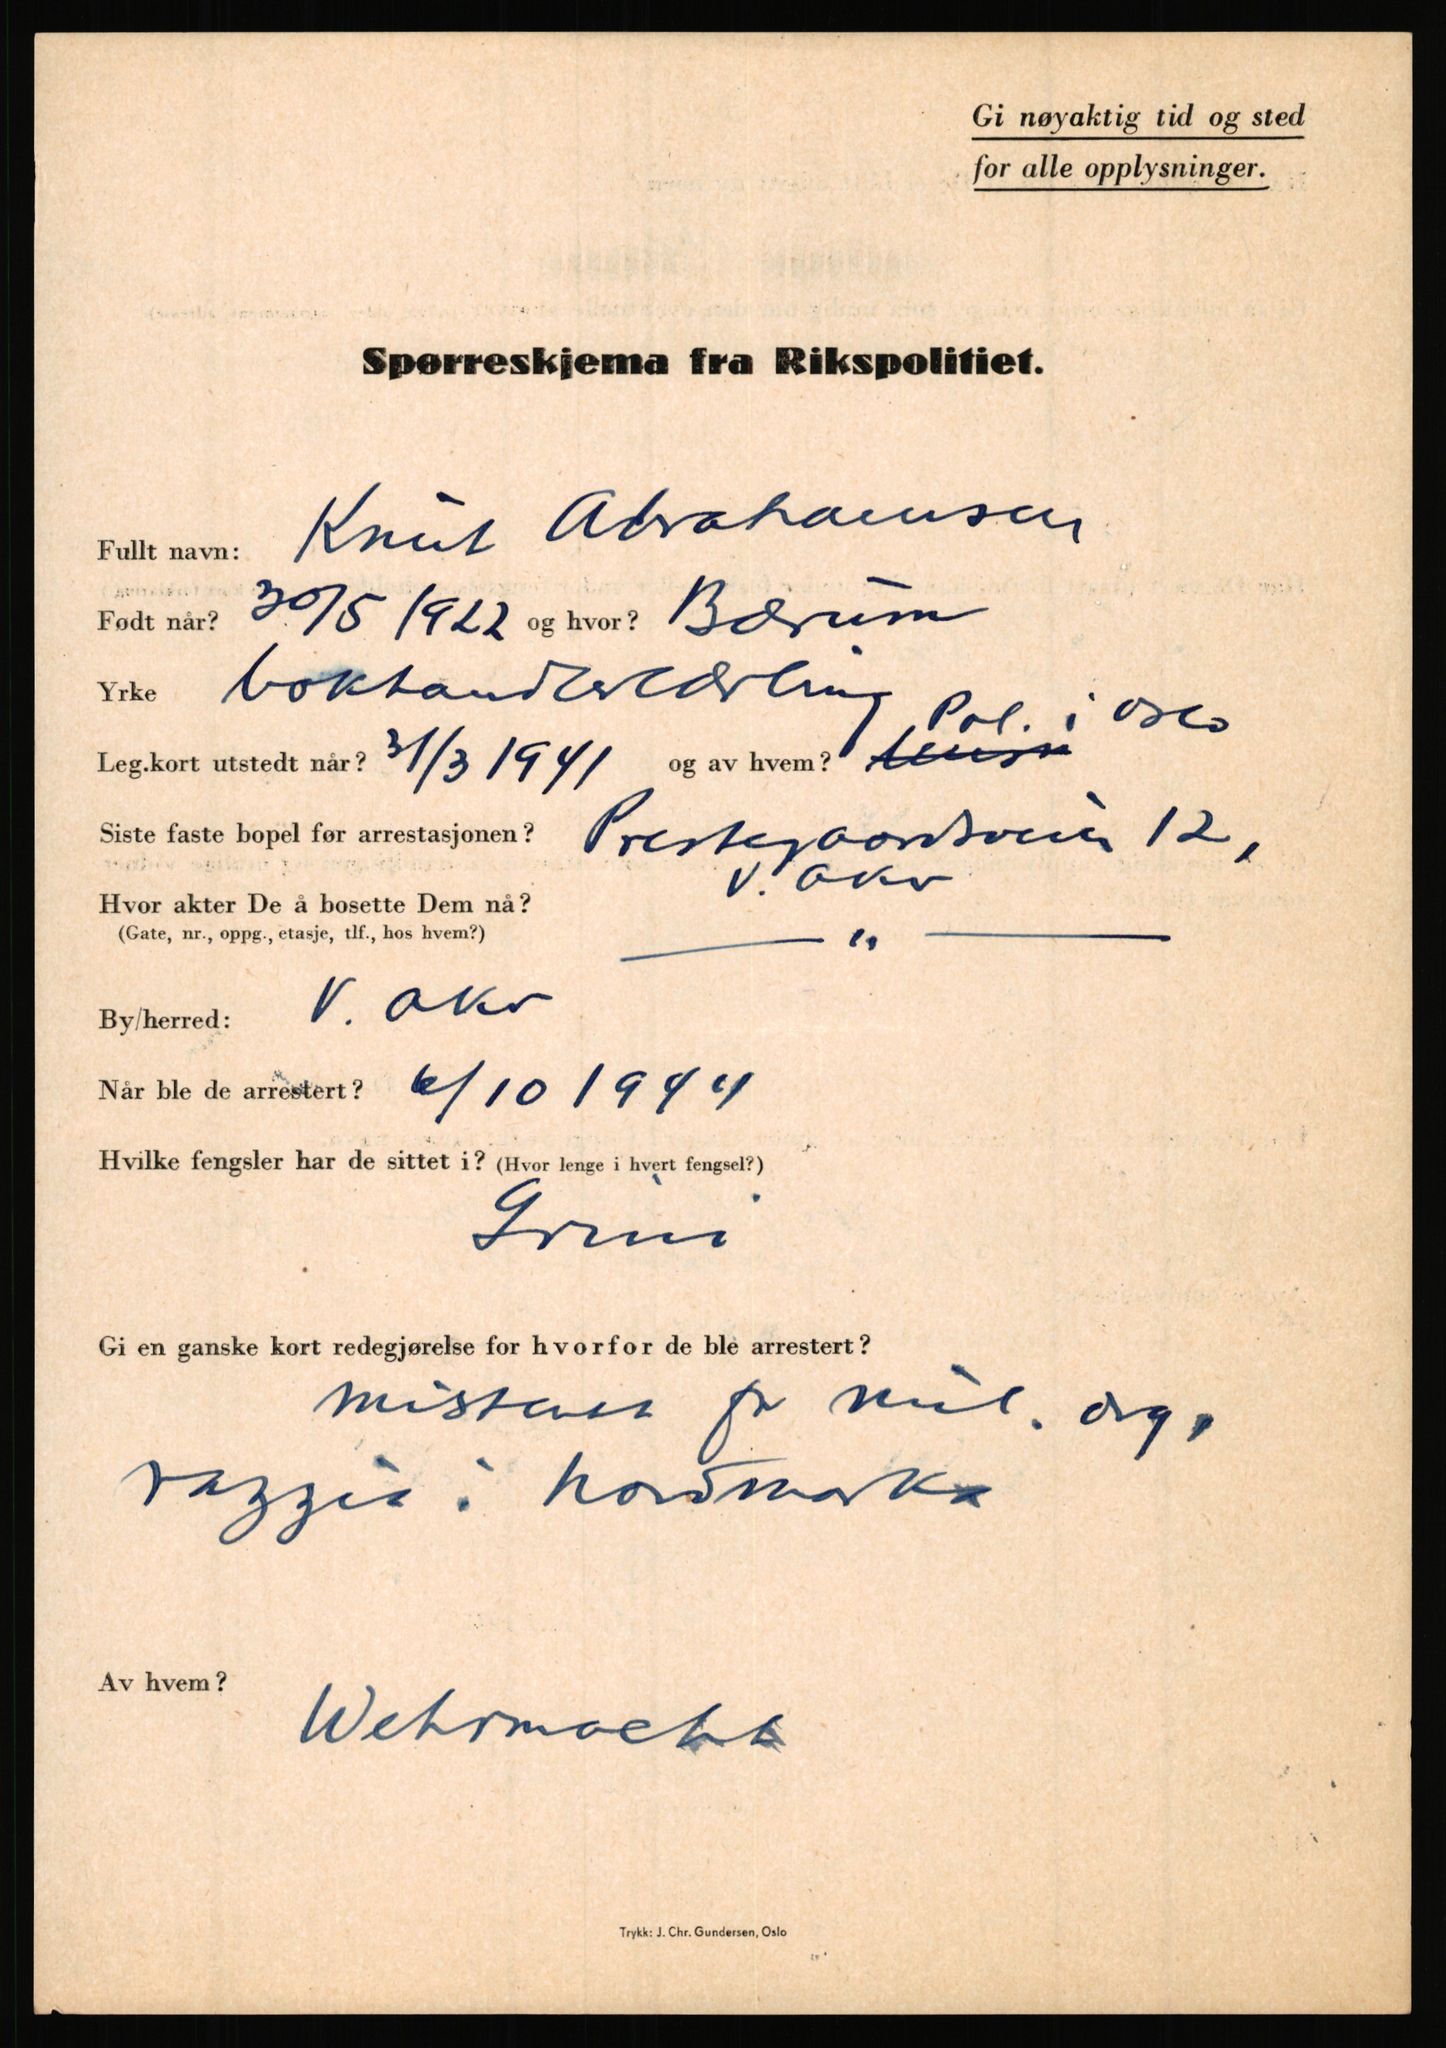 Gi nøyaktig tid og sted
for alle opplysninger.
Spørreskjema fra Rikspolitiet.
Fullt navn: Knut Abrahamsen
Født når? 30/5 1922 og hvor? Bærum
Yrke bokhandlerlærling
Leg.kort utstedt når? 31/3 1941 og av hvem? Pol. i Oslo
Siste faste bopel før arrestasjonen? Prestegaardsveien 12,
V. Aker
Hvor akter De å bosette Dem nå? — " —
(Gate, nr., oppg., etasje, tlf., hos hvem?)
By/herred: V. Aker
Når ble de arrestert? 6/10 1944
Hvilke fengsler har de sittet i? (Hvor lenge i hvert fengsel?)
Grini
Gi en ganske kort redegjørelse for hvorfor de ble arrestert?
mistenkt for mil. org,
razzia i Nordmarka
Av hvem? Wehrmacht
Trykk: J. Chr. Gundersen, Oslo